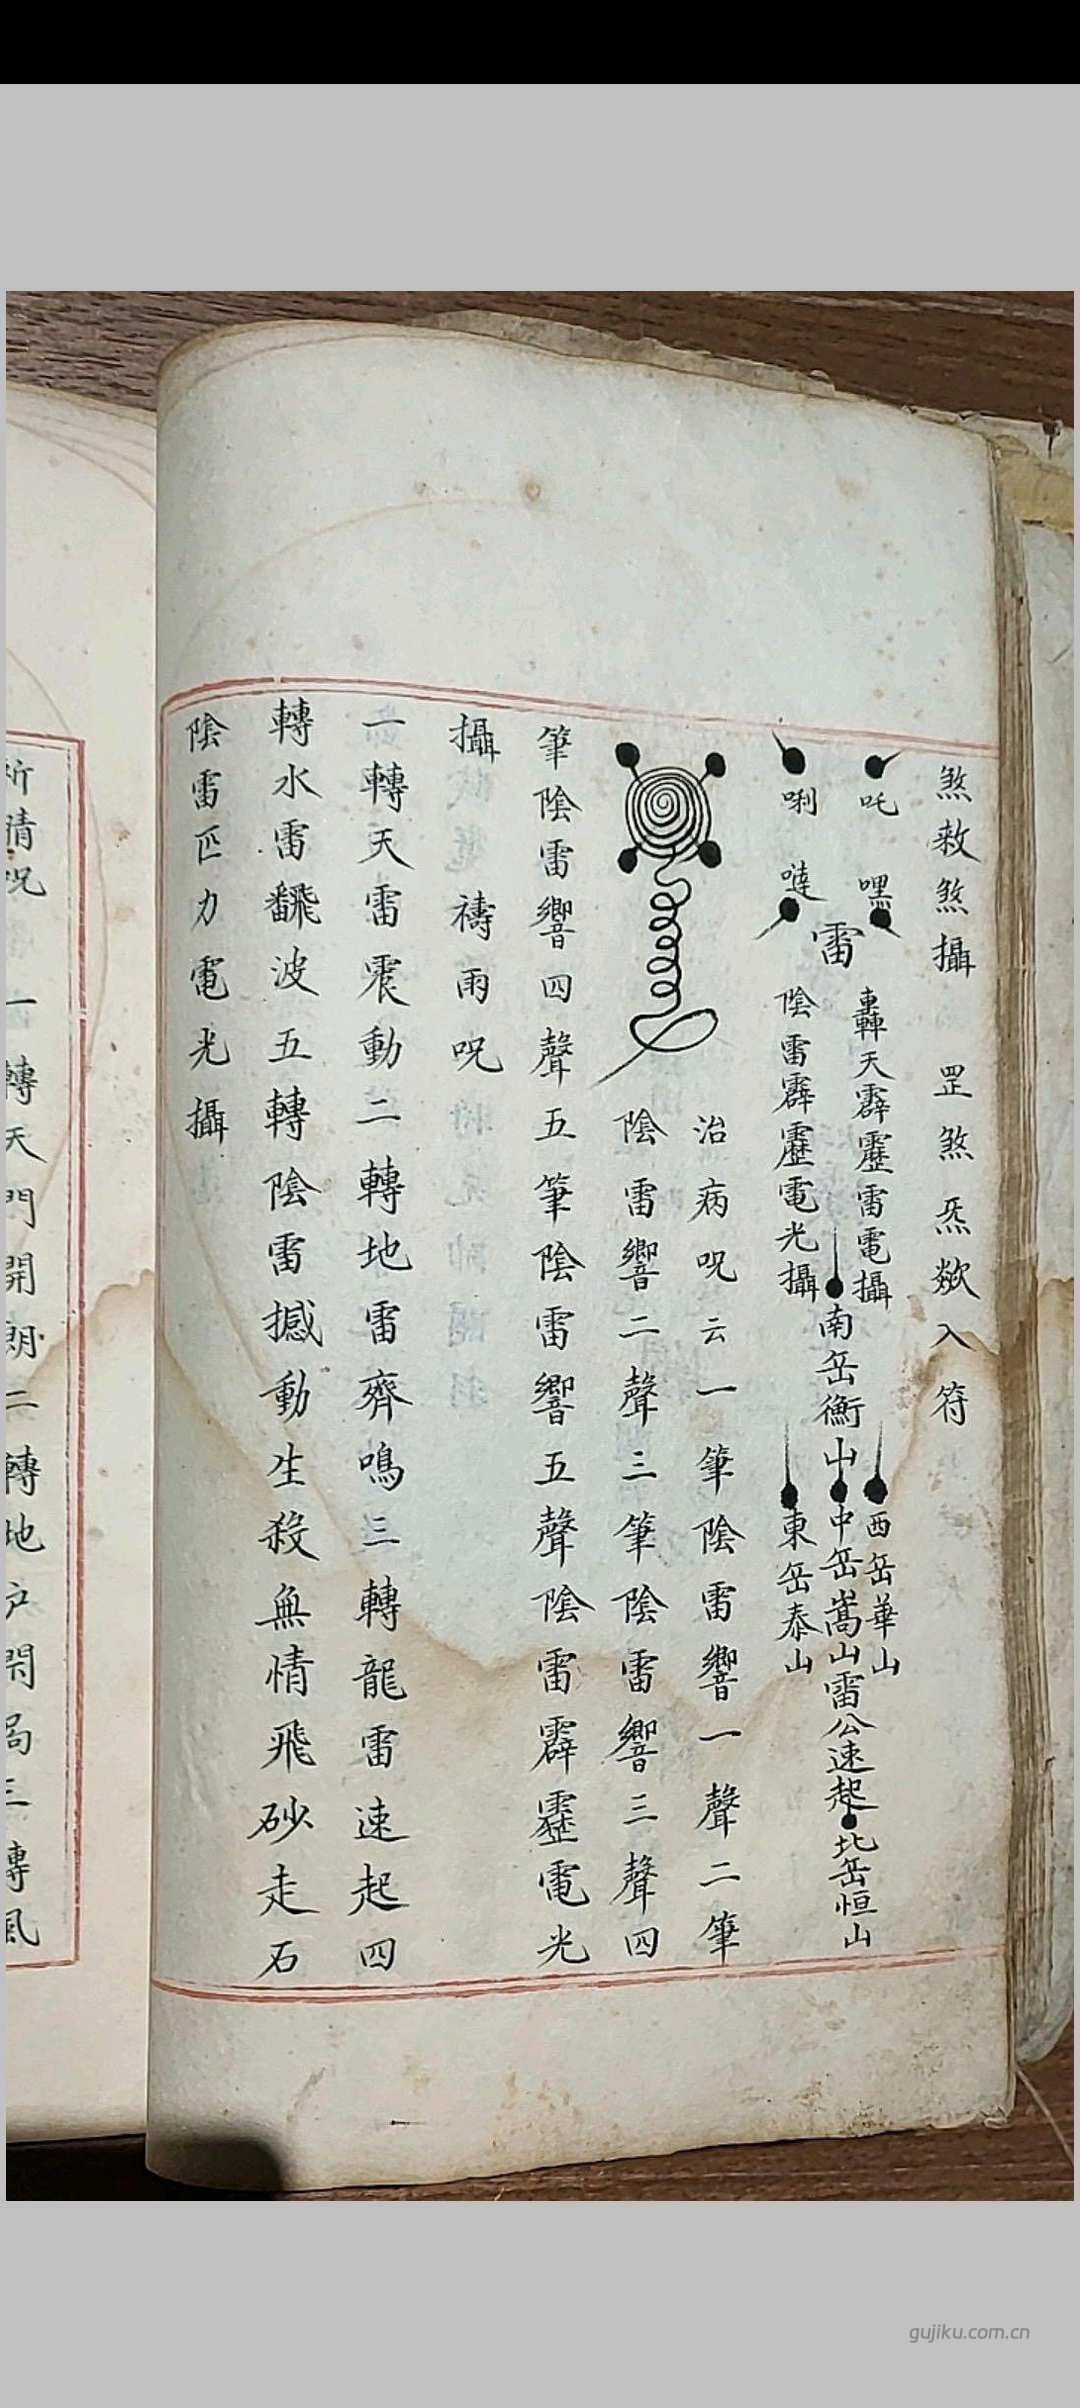 煞敕煞攝 罡煞炁欻入符
吒
嘿
唎
噠
雷
轟天霹靂雷電攝
陰雷霹靂電光攝
南岳衡山
西岳華山
中岳嵩山雷公速起
東岳泰山
北岳恒山
治病咒云一筆陰雷響一聲二筆
陰雷響二聲三筆陰雷響三聲四
筆陰雷響四聲五筆陰雷響五聲陰雷霹靂電光
攝 禱雨咒
一轉天雷震動二轉地雷齊鳴三轉龍雷速起四
轉水雷飜波五轉陰雷撼動生殺無情飛砂走石
陰雷匹力電光攝
祈晴咒 一轉天門開朗二轉地户閉局三轉風
gujiku.com.cn